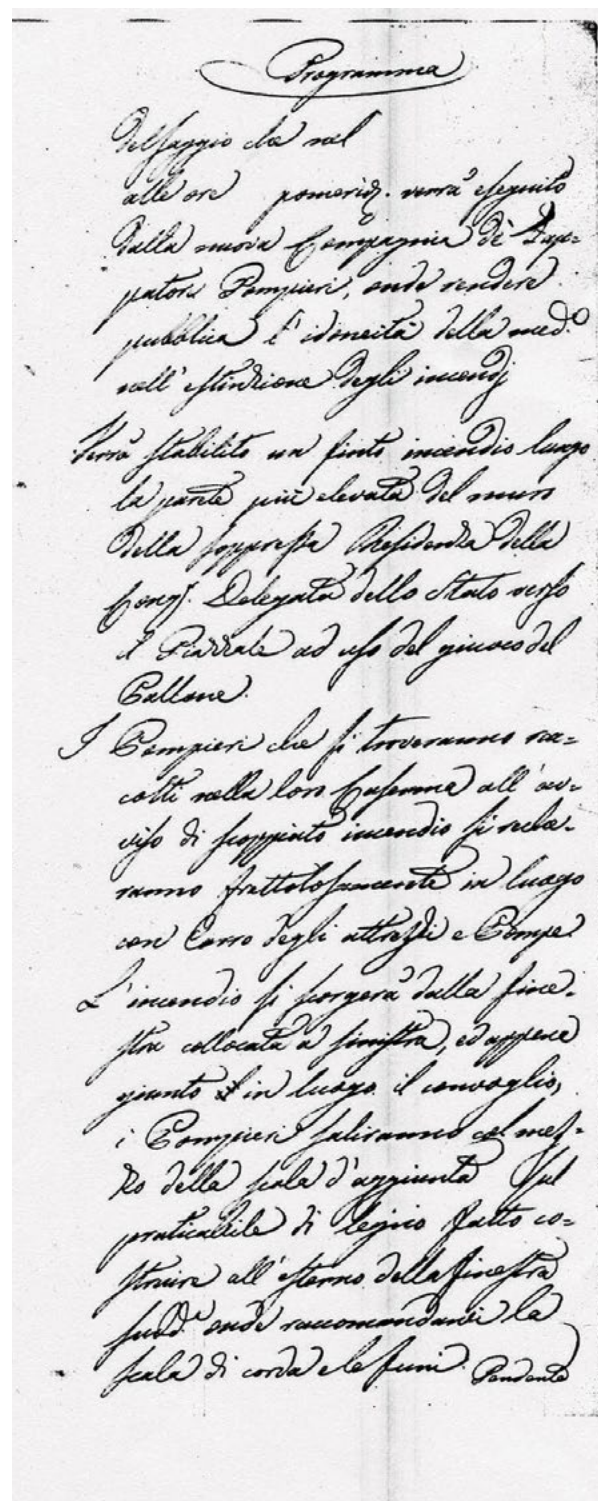 Programma
del saggio che nel
alle ore pomerid. verrà eseguito
dalla nuova Compagnia di Zap-
patori Pompieri, onde rendere
pubblica l'idoneità della med.a
nell'estinzione degli incendj
Verrà stabilito un finto incendio lungo
la parete più elevata del muro
della soppressa Residenza della
Cong. Delegata dello Stato verso
il Piazzale ad uso del giuoco del
Pallone.
I Pompieri che si troveranno rac=
colti nella loro Caserma all'av=
viso di scoppiato incendio si reche=
ranno frettolosamente in luogo
con Carro degli attrezzi e Pompe
L'incendio si scorgerà dalla fine=
stra collocata a sinistra, ed appena
giunto in luogo il convoglio,
i Pompieri saliranno col mez=
zo della scala d'aggiunta sul
praticabile di legno fatto co=
struire all'esterno della finestra
sudd.a onde raccomandarvi la
scala di corda e le funi. Pendente